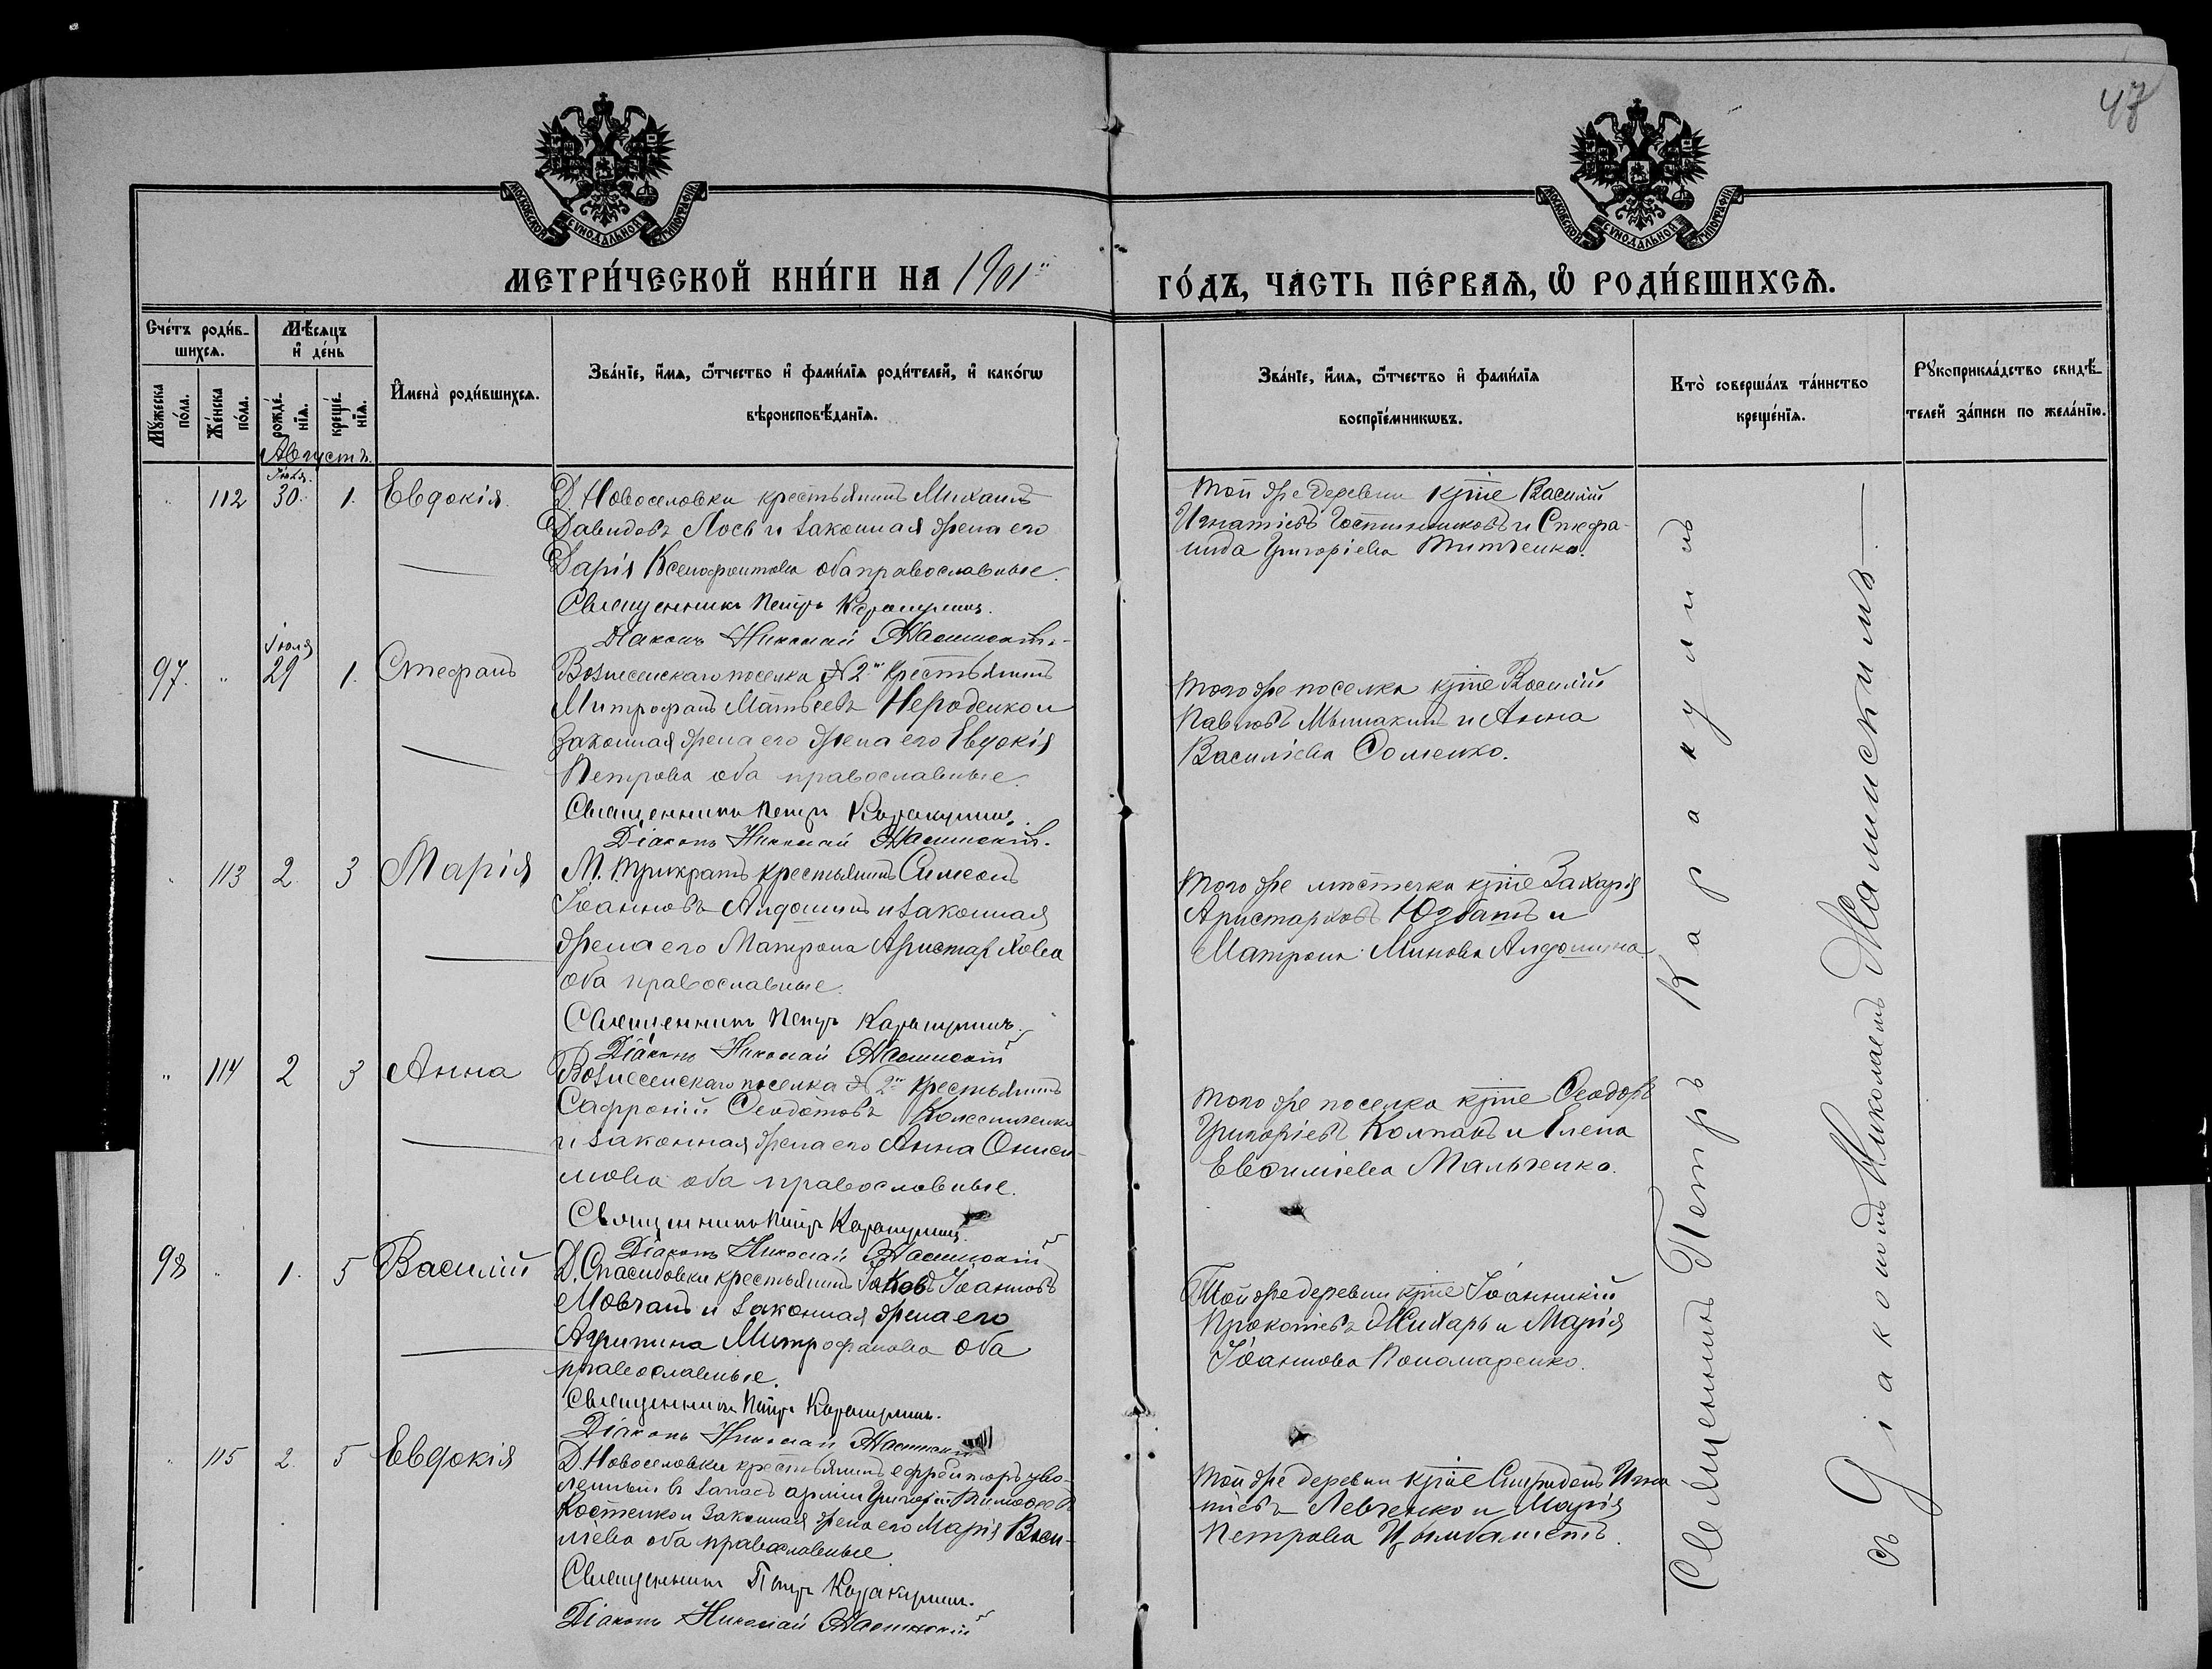 47
МОСКОВСКОЙ СУНОДАЛЬНОЙ ТИПОГРАФІИ
МОСКОВСКОЙ СУНОДАЛЬНОЙ ТИПОГРАФІИ
МЕТРИ́ЧЕСКОЙ КНИ́ГИ НА 1901й
ГО́ДЪ, ЧА́СТЬ ПЕ́РВАѦ, Ѡ҆ РОДИ́ВШИХСѦ.
Сче́тъ роди́в-
шихсѧ.
Мѣ́сѧцъ
и҆ де́нь
Мꙋ́жеска
по́ла.
Же́нска
по́ла.
рожде́-
нїѧ.
креще́-
нїѧ.
И҆мена̀ роди́вшихсѧ.
Зва́нїе, и҆́мѧ, ѻ҆́тчество и҆ фами́лїѧ роди́телей, и҆ како́гѡ
вѣроисповѣ́данїѧ.
Зва́нїе, и҆́мѧ, ѻ҆́тчество и҆ фами́лїѧ
воспрїе́мникѡвъ.
Кто̀ соверша́лъ та́инство
креще́нїѧ.
Рꙋкоприкла́дство свидѣ́-
телей за́писи по жела́нїю.
Августъ.
Іюля.
112 30. 1. Евдокія. Д. Новоселовки крестьянинъ Михаилъ
Давидовъ Лось и законная жена его
Дарія Ксенофонтова оба православные.
Священникъ Петръ Каракулинъ.
Діаконъ Николай Жалинскій
Той же деревни крт͞не Василій
Игнатіевъ и Стефа-
нида Григоріева Титченко.
Іюля
97. 29 1. Стефанъ Вознесенскаго поселка №2й крестьянинъ
Митрофанъ Матвѣевъ Нероденко и
законная жена его жена его Евдокія
Петрова оба православные.
Священникъ Петръ Каракулинъ.
Діаконъ Николай Жалинскій.
Того же поселка крт͞не Василій
Павловъ и Анна
Василіева
113 2. 3 Марія М. Трикратъ крестьянинъ Симеонъ
Іоанновъ Алдошинъ и законная
жена его Матрона Аристархова
оба православные.
Священникъ Петръ Каракулинъ.
Діаконъ Николай Жалинскій
Того же мѣстечка крт͞не Захарія
Аристарховъ Юзбашъ и
Матрона Минова Алдошина
114 2 3 Анна Вознесенскаго поселка №2й крестьянинъ
Сафроній Ѳеодотовъ Колесниченко
и законная жена его Анна Ониси-
мова оба православные.
Священникъ Петръ Каракулинъ.
Діаконъ Николай Жалинскій
Того же поселка крт͞не Ѳеодоръ
Григоріевъ Колпакъ и Елена
Евѳиміева Мальченко.
98 1. 5 Василій Д. Спасибовки крестьянинъ Іаковъ Іоанновъ
Мовчанъ и законная жена его
Агрипина Митрофанова оба
православные.
Священникъ Петръ Каракулинъ.
Діаконъ Николай Жалинскій
Той же деревни крт͞не Іоанникій
Прокопіевъ Жихарь и Марія
Іоаннова Пономаренко.
115 2. 5 Евдокія Д. Новоселовки крестьянинъ ефрейторъ уво-
ленный въ запасъ арміи Григорій Тимоѳеевъ
Костенко и законная жена его Марія Васи-
ліева оба православные.
Священникъ Петръ Каракулинъ.
Діаконъ Николай Жалинскій
Той же деревни крт͞не Спиридонъ Игна-
тіевъ Левченко и Марія
Петрова Цымбалистъ.
Священникъ Петръ Каракулинъ
съ Діакономъ Николаемъ Жалинскимъ